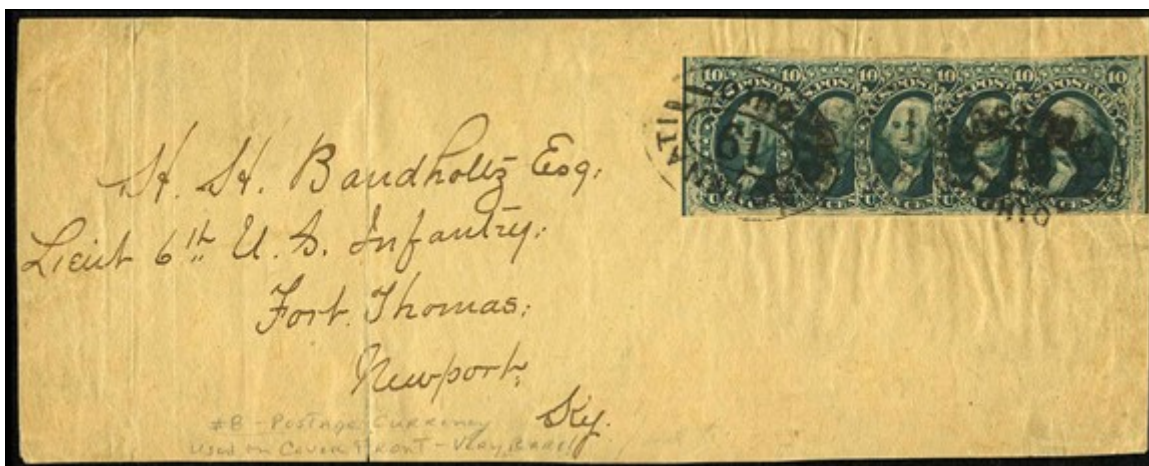 10 10 10 10 10 10
U.S. POSTAGE
CINNATI
19
OHIO
H. H. Bandholtz Esq.
Lieut 6th U. S. Infantry.
Fort Thomas.
Newport,
Ky.
#8 - Postage Currency
used on Cover Front - Very Rare!